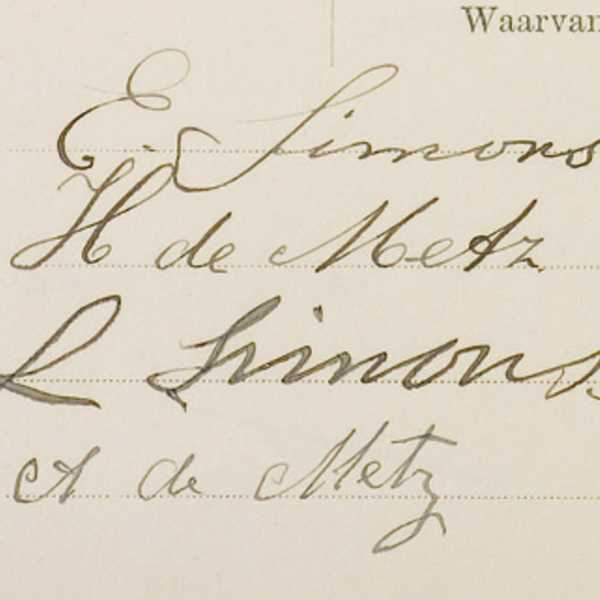 Waarvan
E. Simons
H de Metz
L Simons
A de Metz